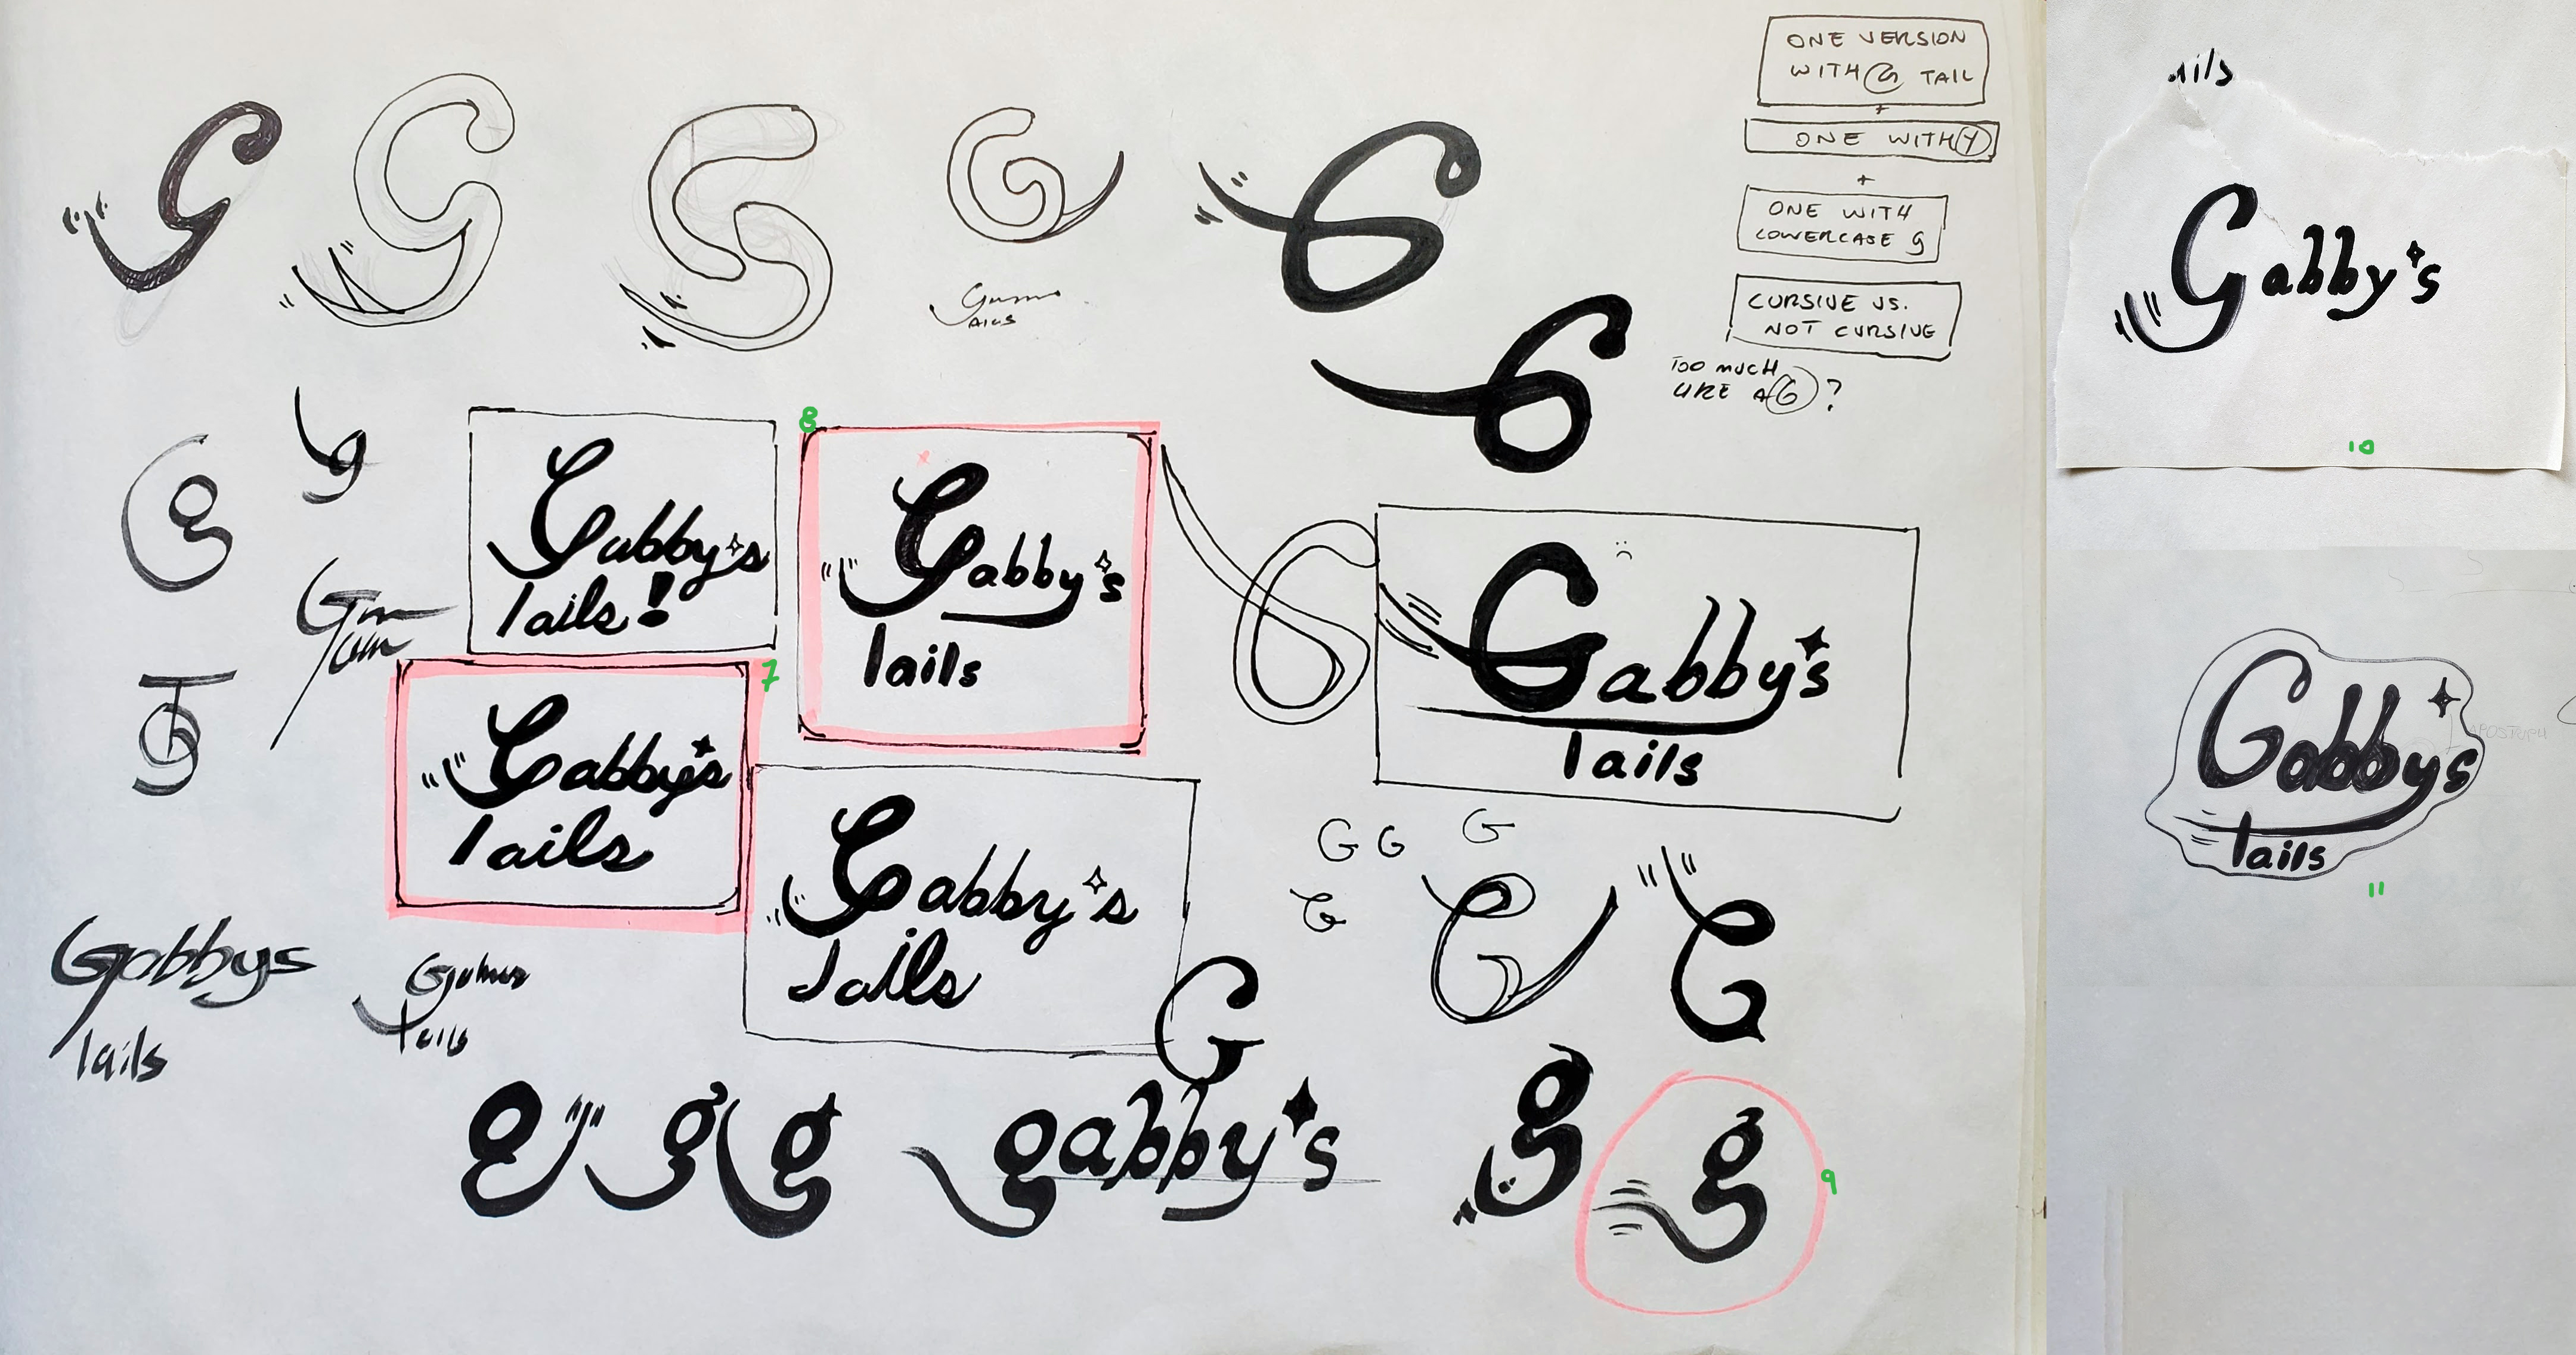 ONE VERSION
WITH G TAIL
+
ONE WITH Y
+
ONE WITH
LOWERCASE g
CURSIVE VS.
NOT CURSIVE
TOO MUCH
LIKE A 6?
G
G
G
G
G
G
g
g
8
Gabby's
Tails!
Gabby's
Tails
Gabby's
Tails
7
Gabby's
Tails
Gabby's
Tails
G G G
G
G
G
G
Gabbys
Tails
Tails
g
g
g
gabby's
g
g
9
ails
Gabby's
10
Gabbys
Tails
11